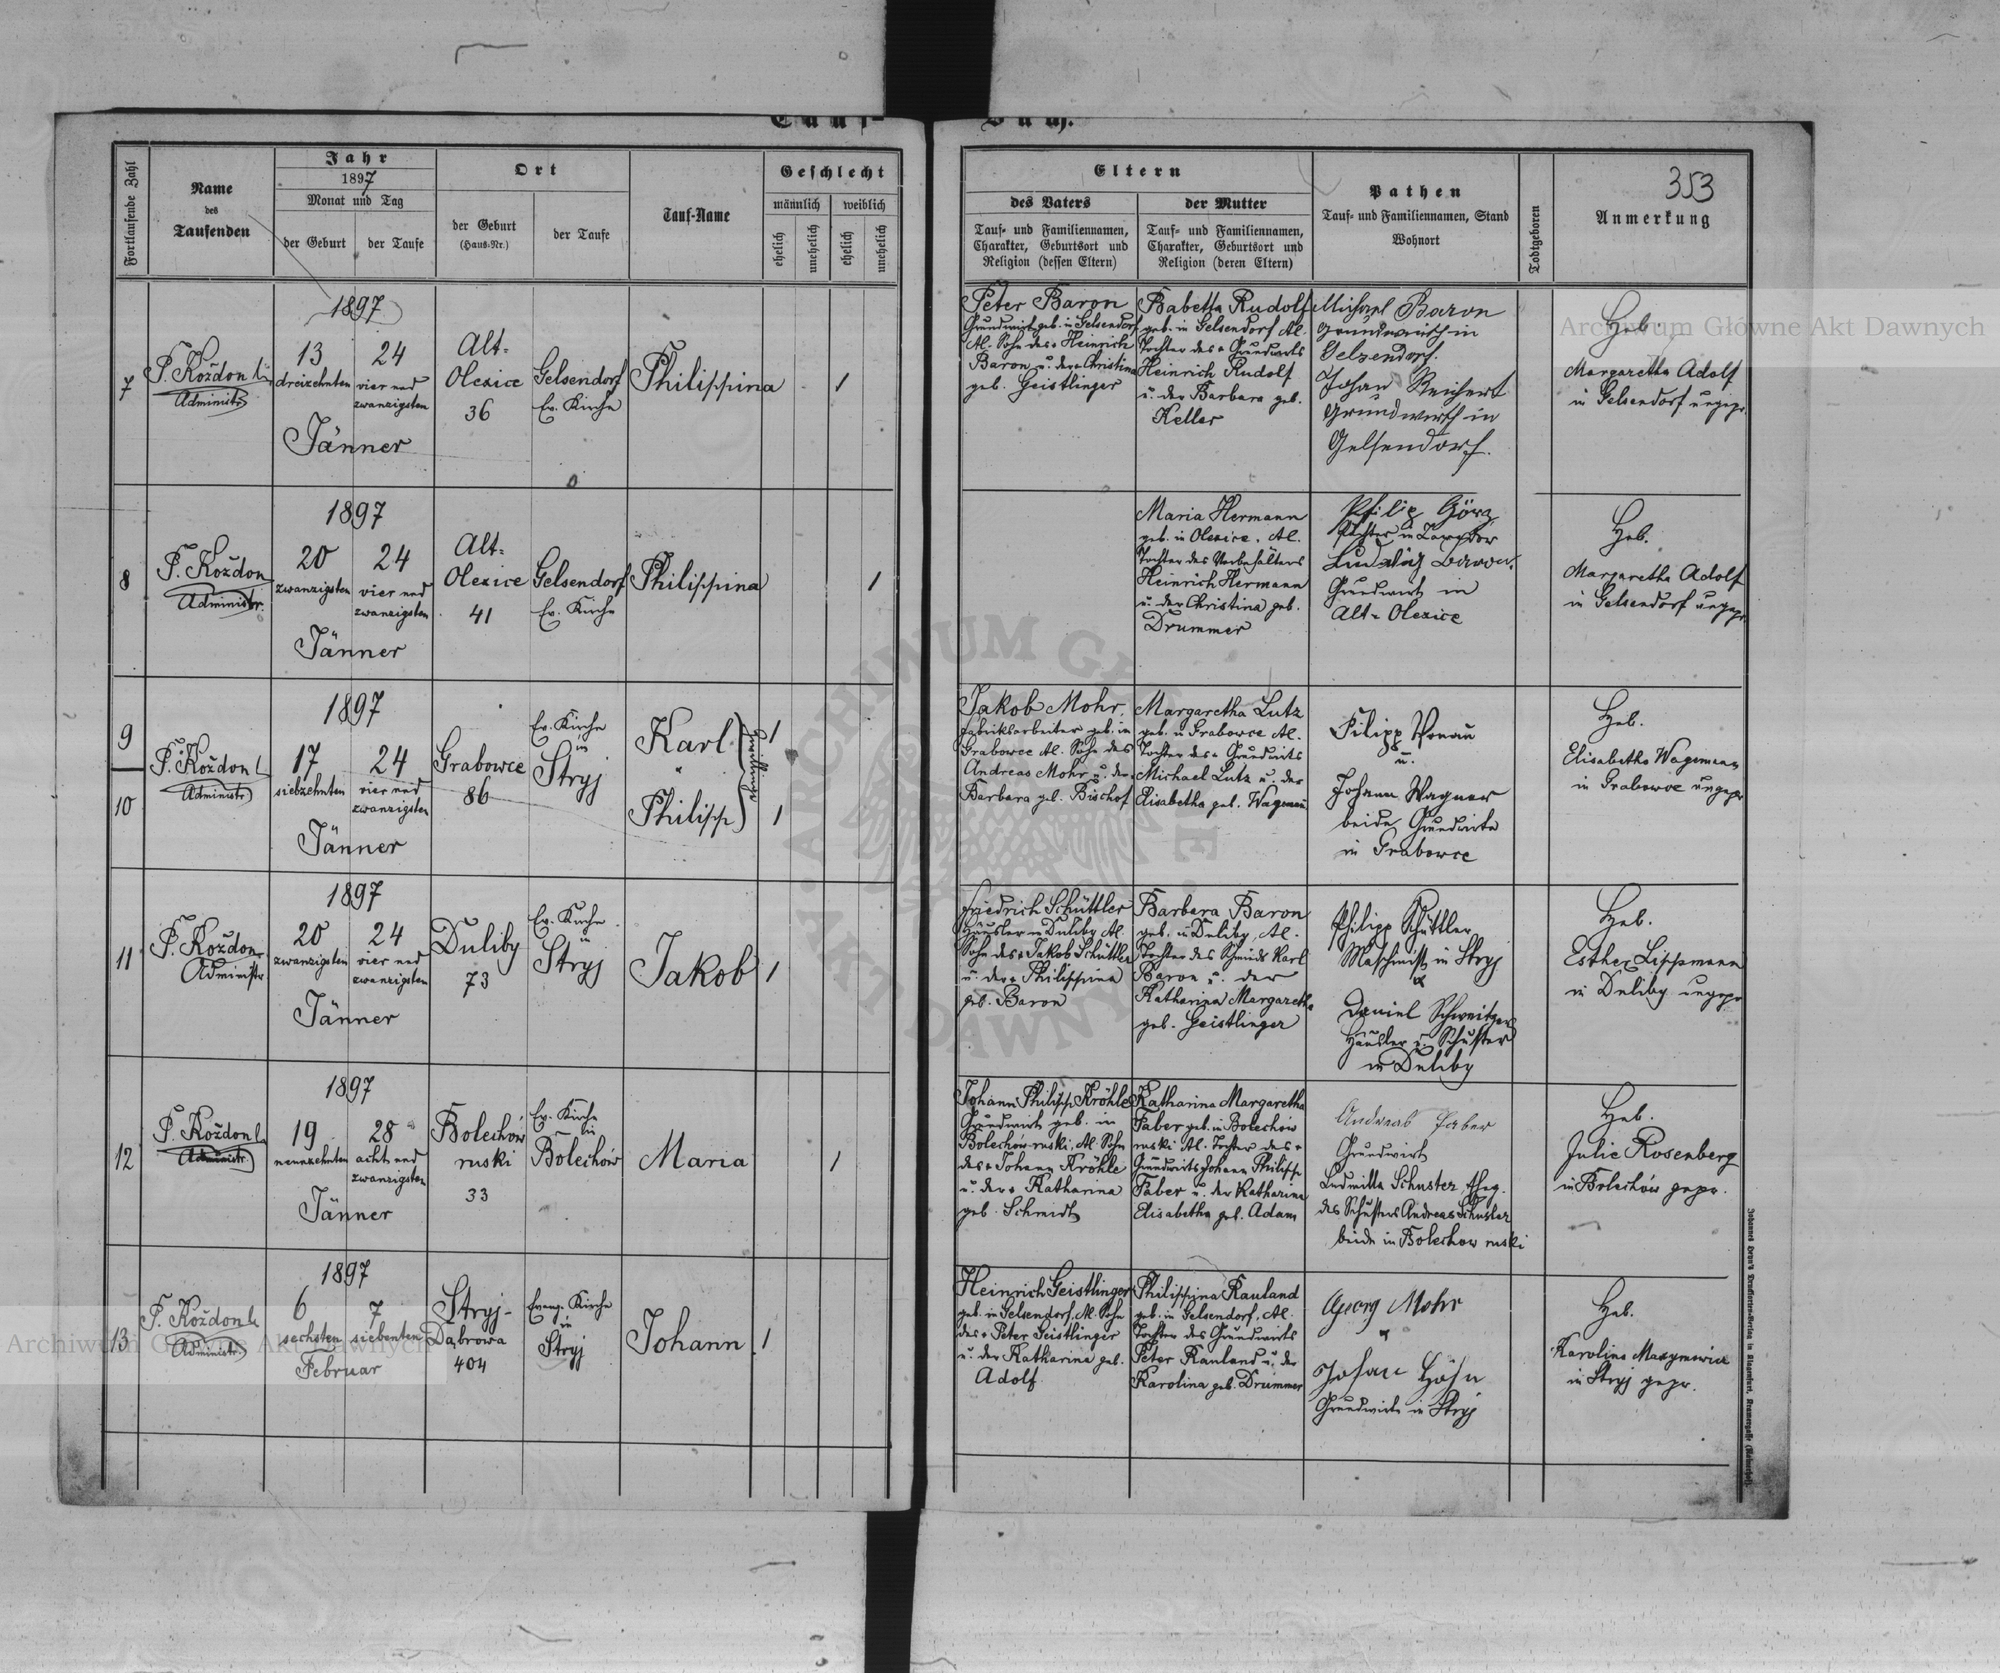 Tauf-Buch.
353
Fortlaufende Zahl
Name
des
Taufenden
Jahr
1897
Monat und Tag
der Geburt
der Taufe
Ort
der Geburt
(Haus-Nr.)
der Taufe
Tauf-Name
Geschlecht
männlich
weiblich
ehelich
unehelich
ehelich
unehelich
Eltern
des Vaters
Tauf- und Familiennamen,
Charakter, Geburtsort und
Religion (dessen Eltern)
der Mutter
Tauf- und Familiennamen,
Charakter, Geburtsort und
Religion (deren Eltern)
Pathen
Tauf- und Familiennamen, Stand
Wohnort
Todtgeboren
Anmerkung
7
P. Koždon
Administr.
1897
13
dreizehnten
24
vier und
zwanzigsten
Jänner
Alt-
Olexice
36
Gelsendorf
Ev. Kirche
Philippina
1
Peter Baron
Grundwirt geb. in Gelsendorf
Al. Sohn des + Heinrich
Baron u. der + Christina
geb. Geistlinger
Babetta Rudolf
geb. in Gelsendorf Al.
Tochter des + Grundwirts
Heinrich Rudolf
u. der Barbara geb.
Keller
Michael Baron
Grundwirth in
Gelsendorf.
Johan Reichert
Grundwirth in
Gelsendorf.
Heb.
Margaretha Adolf
in Gelsendorf ungepr.
8
P. Koždon
Administr.
1897
20
zwanzigsten
24
vier und
zwanzigsten
Jänner
Alt-
Olexice
41
Gelsendorf
Ev. Kirche
Philippina
1
Maria Hermann
geb. in Olexice, Al.
Tochter des Vorbehälters
Heinrich Hermann
u. der Christina geb.
Drummer
Philip Görz
Ludwig Baron.
Grundwirt in
Alt-Olexice
Heb.
Margaretha Adolf
in Gelsendorf ungepr.
9
10
P. Koždon
Administr.
1897
17
siebzehnten
24
vier und
zwanzigsten
Jänner
Grabowce
86
Ev. Kirche
in
Stryj
Karl
Philipp
Zwillinge
1
1
Jakob Mohr,
Fabriksarbeiter geb. in
Grabowce Al. Sohn des
Andreas Mohr u. der
Barbara geb. Bischof
Margaretha Lutz
geb. in Grabowce Al.
Tochter des + Grundwirts
Michael Lutz u. der
Elisabetha geb. Wagemann
Filipp
u.
Johann Wagner
beide Grundwirte
in Grabowce
Heb.
Elisabetha Wagemann
in Grabowce ungepr
11
P. Koždon
Administr.
1897
20
zwanzigsten
24
vier und
zwanzigsten
Jänner
Duliby
73
Ev. Kirche
in
Stryj
Jakob
1
Friedrich Schüttler
Häusler in Duliby Al.
Sohn des + Jakob Schüttler
u. der + Philippina
geb. Baron
Barbara Baron
geb. in Duliby, Al.
Tochter des Schmieds Karl
Baron u. der
Katharina Margaretha
geb. Geistlinger
Philipp Schüttler
Maschinist in Stryj
Daniel Schweitzer
Häusler u. Schuster
in Duliby
Heb.
Esther Lippmann
in Duliby ungepr
12
P. Koždon
Administr.
1897
19
neunzehnten
28
acht und
zwanzigsten
Jänner
Bolechów
ruski
33
Ev. Kirche
in
Bolechów
Maria
1
Johann Philipp Kröhle
Grundwirt geb. in
Bolechów ruski, Al. Sohn
des + Johann Kröhle
u. der + Katharina
geb. Schmidt
Katharina Margaretha
Faber geb. in Bolechów
ruski Al. Tochter des +
Grundwirts Johann Philipp
Faber u. der Katharina
Elisabetha geb. Adam
Andreas Faber
Grundwirt
Ludmilla Schuster Eheg.
des Schusters Andreas Schuster
beide in Bolechow ruski
Heb.
Julie Rosenberg
in Bolechów gepr.
13
P. Koždon
Administr.
1897
6
sechsten
7
siebenten
Februar
Stryj-
Dąbrowa
404
Evang. Kirche
in
Stryj
Johann
1
Heinrich Geistlinger
geb. in Gelsendorf, Al. Sohn
des + Peter Geistlinger
u. der Katharina geb.
Adolf
Philippina Rauland
geb. in Gelsendorf, Al.
Tochter des Grundwirts
Peter Rauland u. der
Karolina geb. Drummer
Georg Mohr
Johan Höhn
Grundwirte in Stryj
Heb.
Karolina Maxymowicz
in Stryj gepr.
Archiwum Główne Akt Dawnych
Archiwum Główne Akt Dawnych
ARCHIWUM GŁÓWNE AKT DAWNYCH